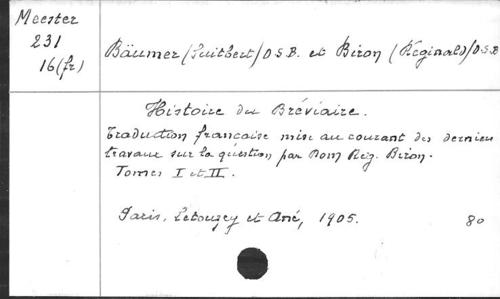 Meester
231
16(fr)
Bäumer (Suitbert) O S B. et Biron (Réginald) O.S.B
Histoire du Bréviaire.
Traduction francaise mise au courant des derniers
travaux sur la question par Dom Rég. Biron.
Tomes I et II.
Paris, Letouzey et Ané, 1905.
80